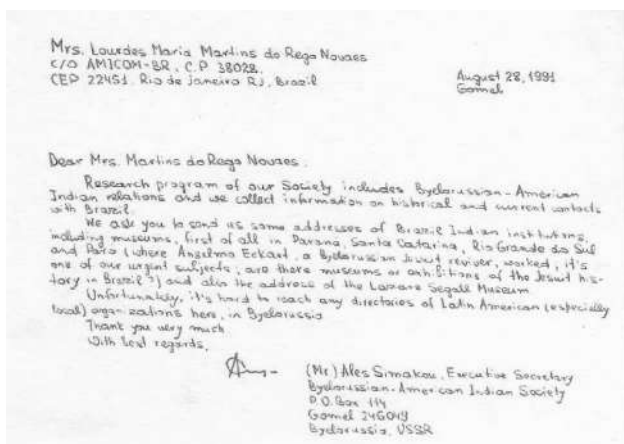 Mrs. Lourdes Maria Martins do Rego Novaes
C/O AMICOM-BR, C.P. 38028,
CEP 22451, Rio de Janeiro RJ, Brazil
August 28, 1991
Gomel
Dear Mrs. Martins do Rego Novaes,
Research program of our Society includes Byelorussian-American
Indian relations and we collect information on historical and current contacts
with Brazil.
We ask you to send us some addresses of Brazil Indian institutions,
including museums, first of all in Parana, Santa Catarina, Rio Grande do Sul
and Para (where Anselmo Eckart, a Byelorussian Jesuit, worked; it's
one of our urgent subjects; are there museums or exhibitions of the Jesuit his-
tory in Brazil?) and also the address of the Lasare Segall Museum
Unfortunately, it's hard to reach any directories of Latin American (especially
local) organizations here, in Byelorussia
Thank you very much
With best regards,
(Mr) Ales Simakou, Executive Secretary
Byelorussian-American Indian Society
P.O. Box 114
Gomel 246049
Byelorussia, USSR